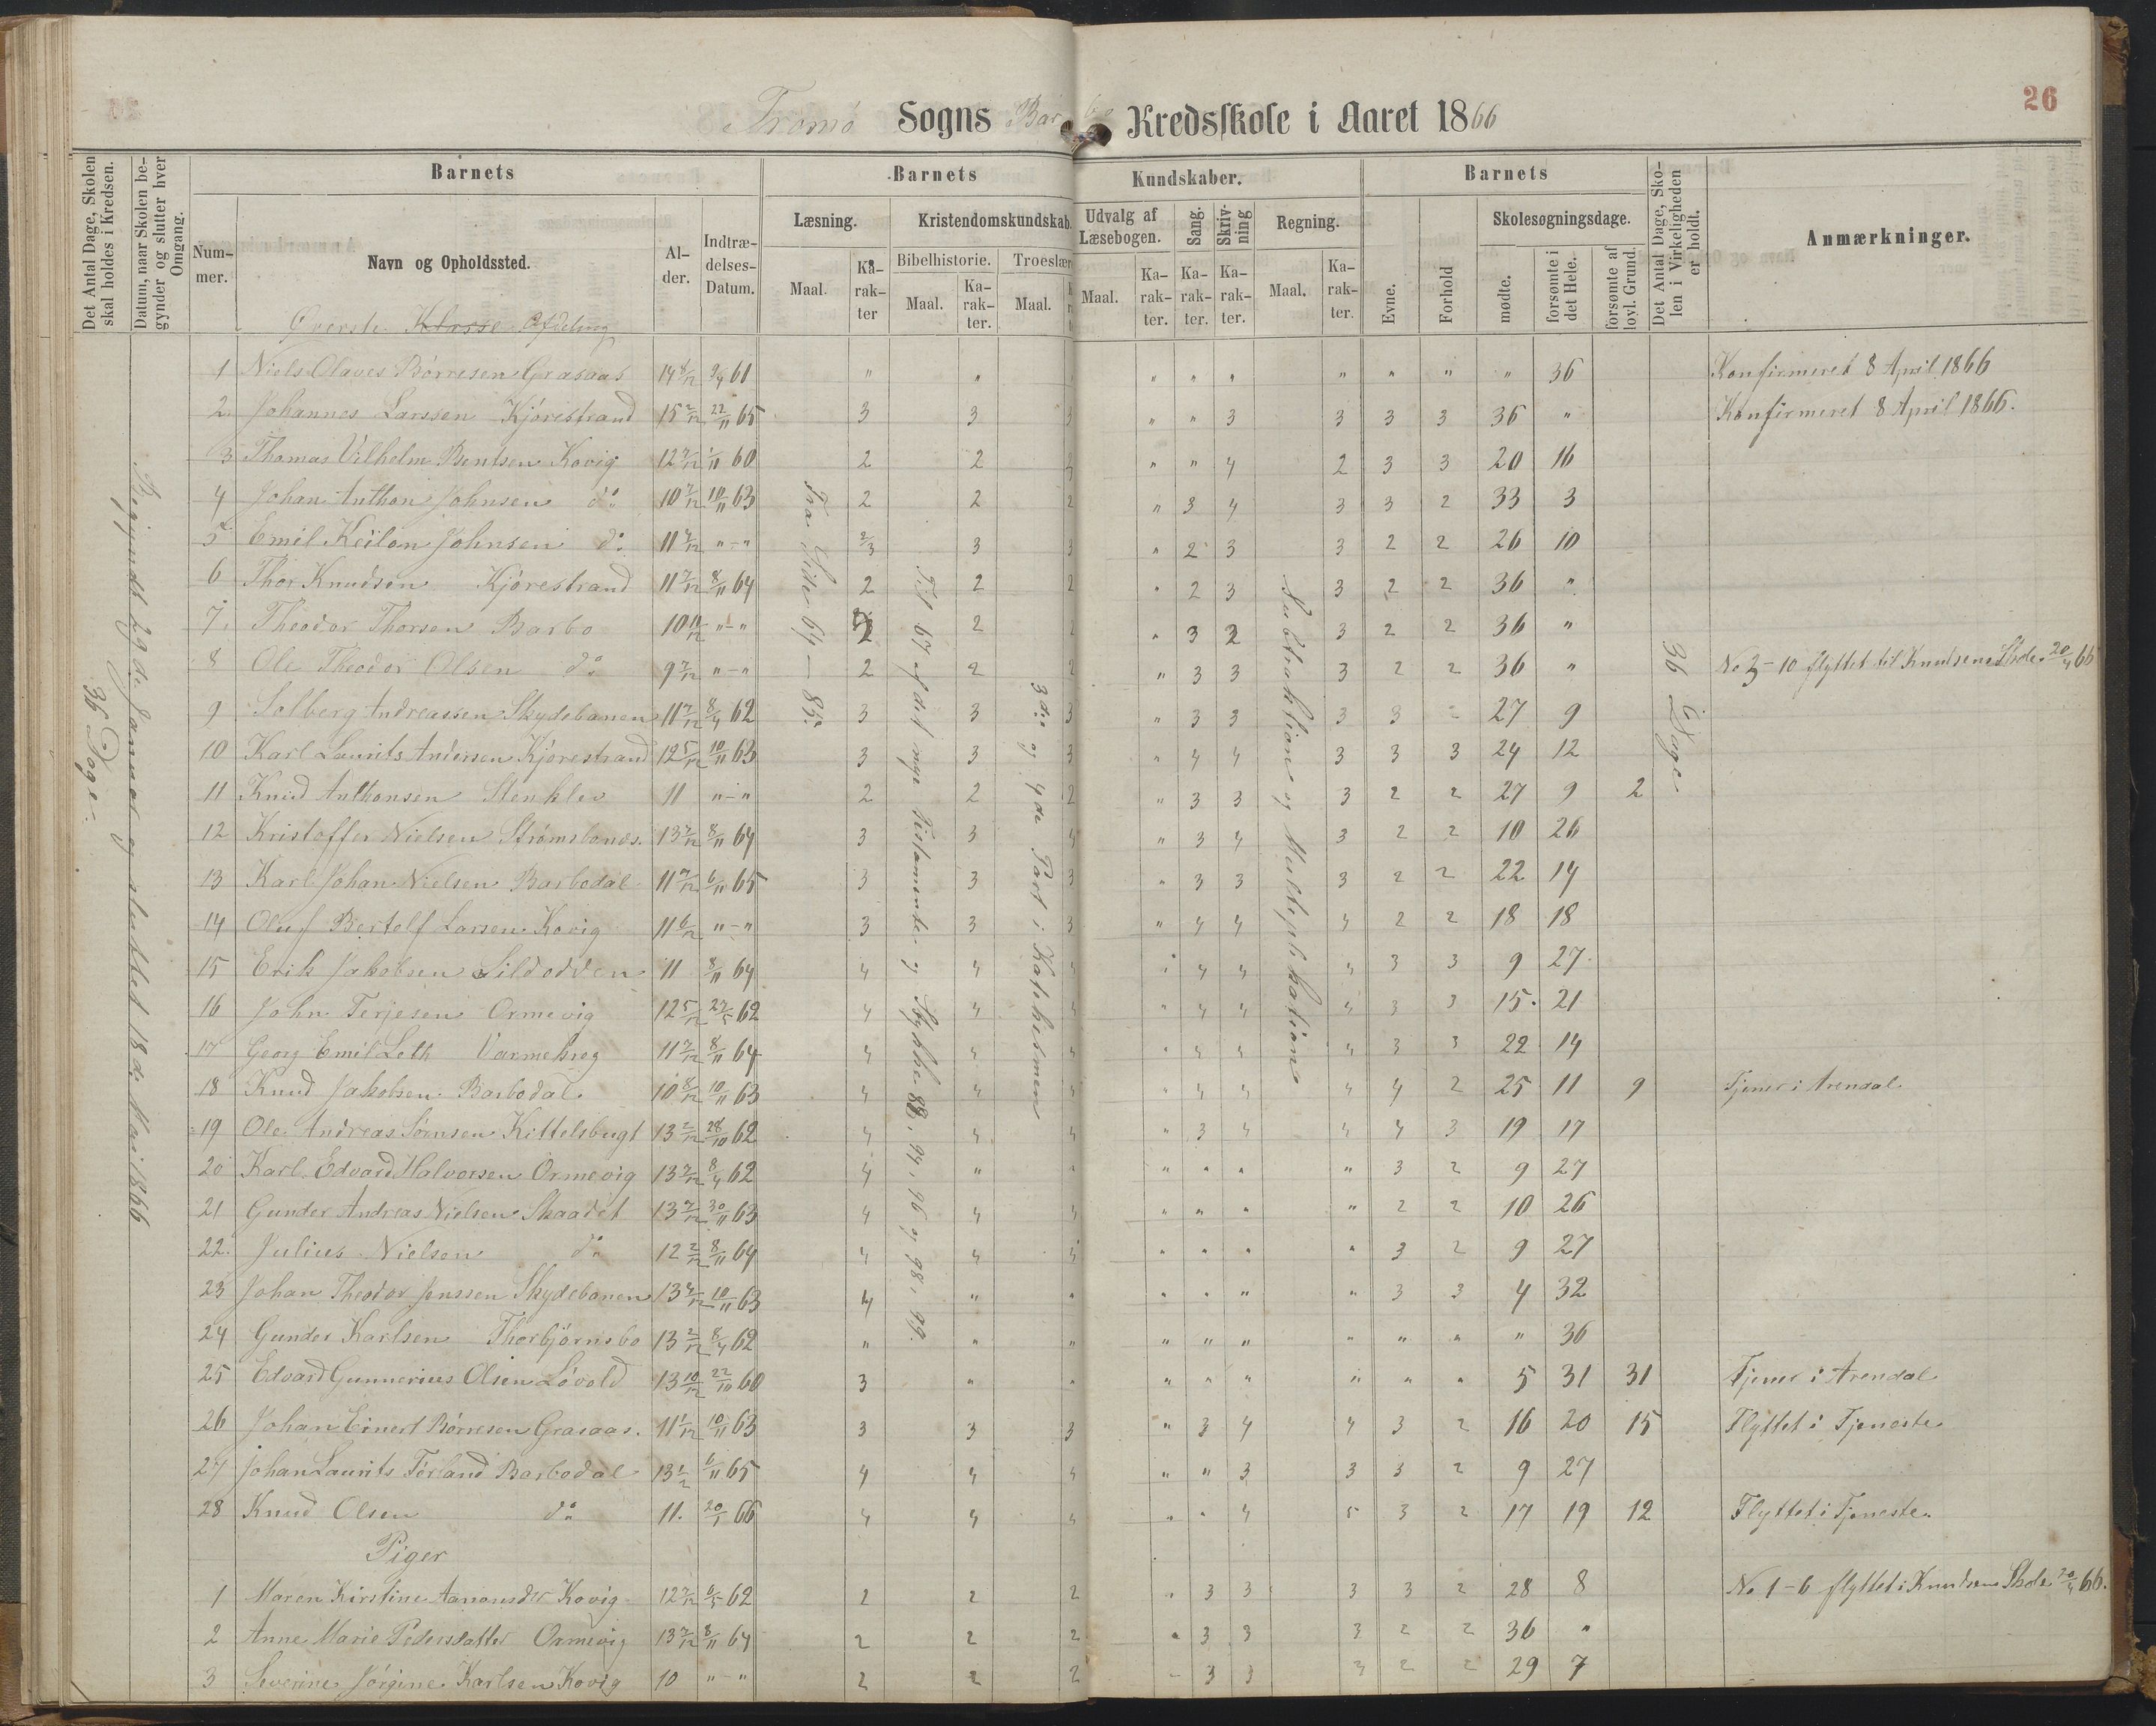 26
Tromø Sogns Barbo Kredsskole i Aaret 1866
Det Antal Dage, Skolen skal holdes i Kredsen.
Datum, naar Skolen begynder og slutter hver Omgang.
Barnets
Barnets Kundskaber.
Barnets
Det Antal Dage, Skolen i Virkeligheden er holdt.
Anmærkninger.
Nummer.
Navn og Opholdssted.
Alder.
Indtrædelses-Datum.
Læsning.
Kristendomskundskab.
Udvalg af Læsebogen.
Sang.
Skrivning
Regning.
Evne.
Forhold
Skolesøgningsdage.
Bibelhistorie.
Troeslære
Maal.
Karakter
Maal.
Karakter.
Maal.
Maal.
Karakter.
Karakter.
Karakter.
Maal.
Karakter.
mødte.
forsømte i det Hele.
forsømte af lovl. Grund.
Øverste Klasse Afdeling
36 Dage.
Begyndt 29de Januar og sluttet 18de Mai 1866
Fra Side 64 - 85.
Til 67 af det nye Testamente og Stykke 88, 94, 96 og 98, 99.
3die og 4de Part i Katekismen
Subtraktion og Multiplikation
36 Dage
1 Niels Olaves Börresen Grasaas 14 8/12 9/4 61 " " " " " " " " " 36 Konfirmeret 8 April 1866
2. Johannes Larssen Kjörestrand 15 2/12 22/11 65 3 3 3 " " 3 3 3 3 36 " Konfirmeret 8 April 1866.
3 Thomas Vilhelm Bentsen Kovig 12 7/12 1/11 60 2 2 2 " " 4 2 3 3 20 16
4 Johan Anthon Johnsen do 10 7/12 10/11 63 2 2 2 " 3 4 3 3 2 33 3
5 Emil Keilon Johnsen do 11 7/12 "-" 2/3 3 3 " 2 3 3 2 2 26 10
6 Thor Knudsen Kjörestrand 11 7/12 8/11 64 2 2 2 " 2 3 3 2 2 36 "
7. Theodor Thorsen Barbo 10 11/12 "-" 2 2 2 " 3 2 3 2 2 36 "
8 Ole Theodor Olsen do 9 7/12 "-" 2 2 2 " 3 3 3 2 2 36 " No 3-10 flyttet til Knudsens Skole 20/4 66
9 Solberg Andreassen Skydebanen 11 7/12 8/4 62 3 3 3 " 3 3 3 3 2 27 9
10 Karl Laurits Andersen Kjörestrand 12 5/12 10/11 63 3 3 3 " 4 4 3 3 3 24 12
11 Knud Anthonsen Stenklev 11 "-" 2 2 2 " 3 3 3 2 2 27 9 2
12 Kristoffer Nielsen Strömsbonds. 13 7/12 8/11 64 3 3 4 " 3 4 3 2 2 10 26
13 Karl Johan Nielsen Barbodal 11 7/12 6/11 65 3 3 3 " 3 3 3 2 2 22 14
14 Oluf Bertolf Larsen Kovig 11 6/12 "-" 3 3 3 " 4 4 4 2 2 18 18
15 Erik Jakobsen Sildodden 11 8/11 64 4 4 4 " 4 4 4 3 3 9 27
16 John Terjesen Ormevig 12 5/12 27/5 62 4 4 4 " 4 4 4 3 3 15 21
17 Georg Emil Leth Varmekrog 11 7/12 8/11 64 4 4 4 " 4 4 4 3 3 22 14
18 Knud Jakobsen Barbodal 10 8/12 10/11 63 4 4 4 " 4 4 4 4 2 25 11 9 Tjener i Arendal
19 Ole Andreas Sörensen Kittelsbugt 13 2/12 28/10 62 4 4 4 " 3 4 4 4 3 19 17
20 Karl Edvard Halvorsen Ormevig 13 7/12 8/4 62 4 " " " " " " 3 2 9 27
21 Gunder Andreas Nielsen Skaadet 13 7/12 30/11 63 4 4 4 " " " " 2 2 10 26
22. Julius Nielsen do 12 2/12 8/11 64 4 4 4 " " " " 3 2 9 27
23 Johan Theodor Jenssen Skydebanen 13 7/12 10/11 63 4 " " " " " " 3 3 4 32
24 Gunder Karlsen Thorbjörnsbo 13 2/12 8/4 62 " " " " " " " " " " 36
25 Edvard Gunnerius Olsen Lövold 13 10/12 22/10 60 3 " " " " " " " " 5 31 31 Tjener i Arendal
26 Johan Einert Börresen Grasaas. 11 1/12 10/11 63 3 3 3 " 3 4 4 3 2 16 20 15 Flyttet i Tjeneste
27 Johan Laurits Törland Barbodal 13 1/2 6/11 65 4 4 4 " " 3 3 3 2 9 27
28 Knud Olsen do 11. 20/1 66 4 4 4 " " 4 5 3 2 17 19 12 Flyttet i Tjeneste.
Piger
1 Maren Kirstine Aanonsdtr Kovig 12 7/12 6/5 62 2 2 2 " 3 3 3 3 2 28 8 No 1-6 flyttet i Knudsens Skole 20/4 66.
2 Anne Marie Pedersdatter Ormevig 13 7/12 8/11 64 2 2 2 " 3 3 3 2 2 36 "
3 Severine Jörgine Karlsen Kovig 10 "-" 2 2 2 " 3 3 3 2 2 29 7